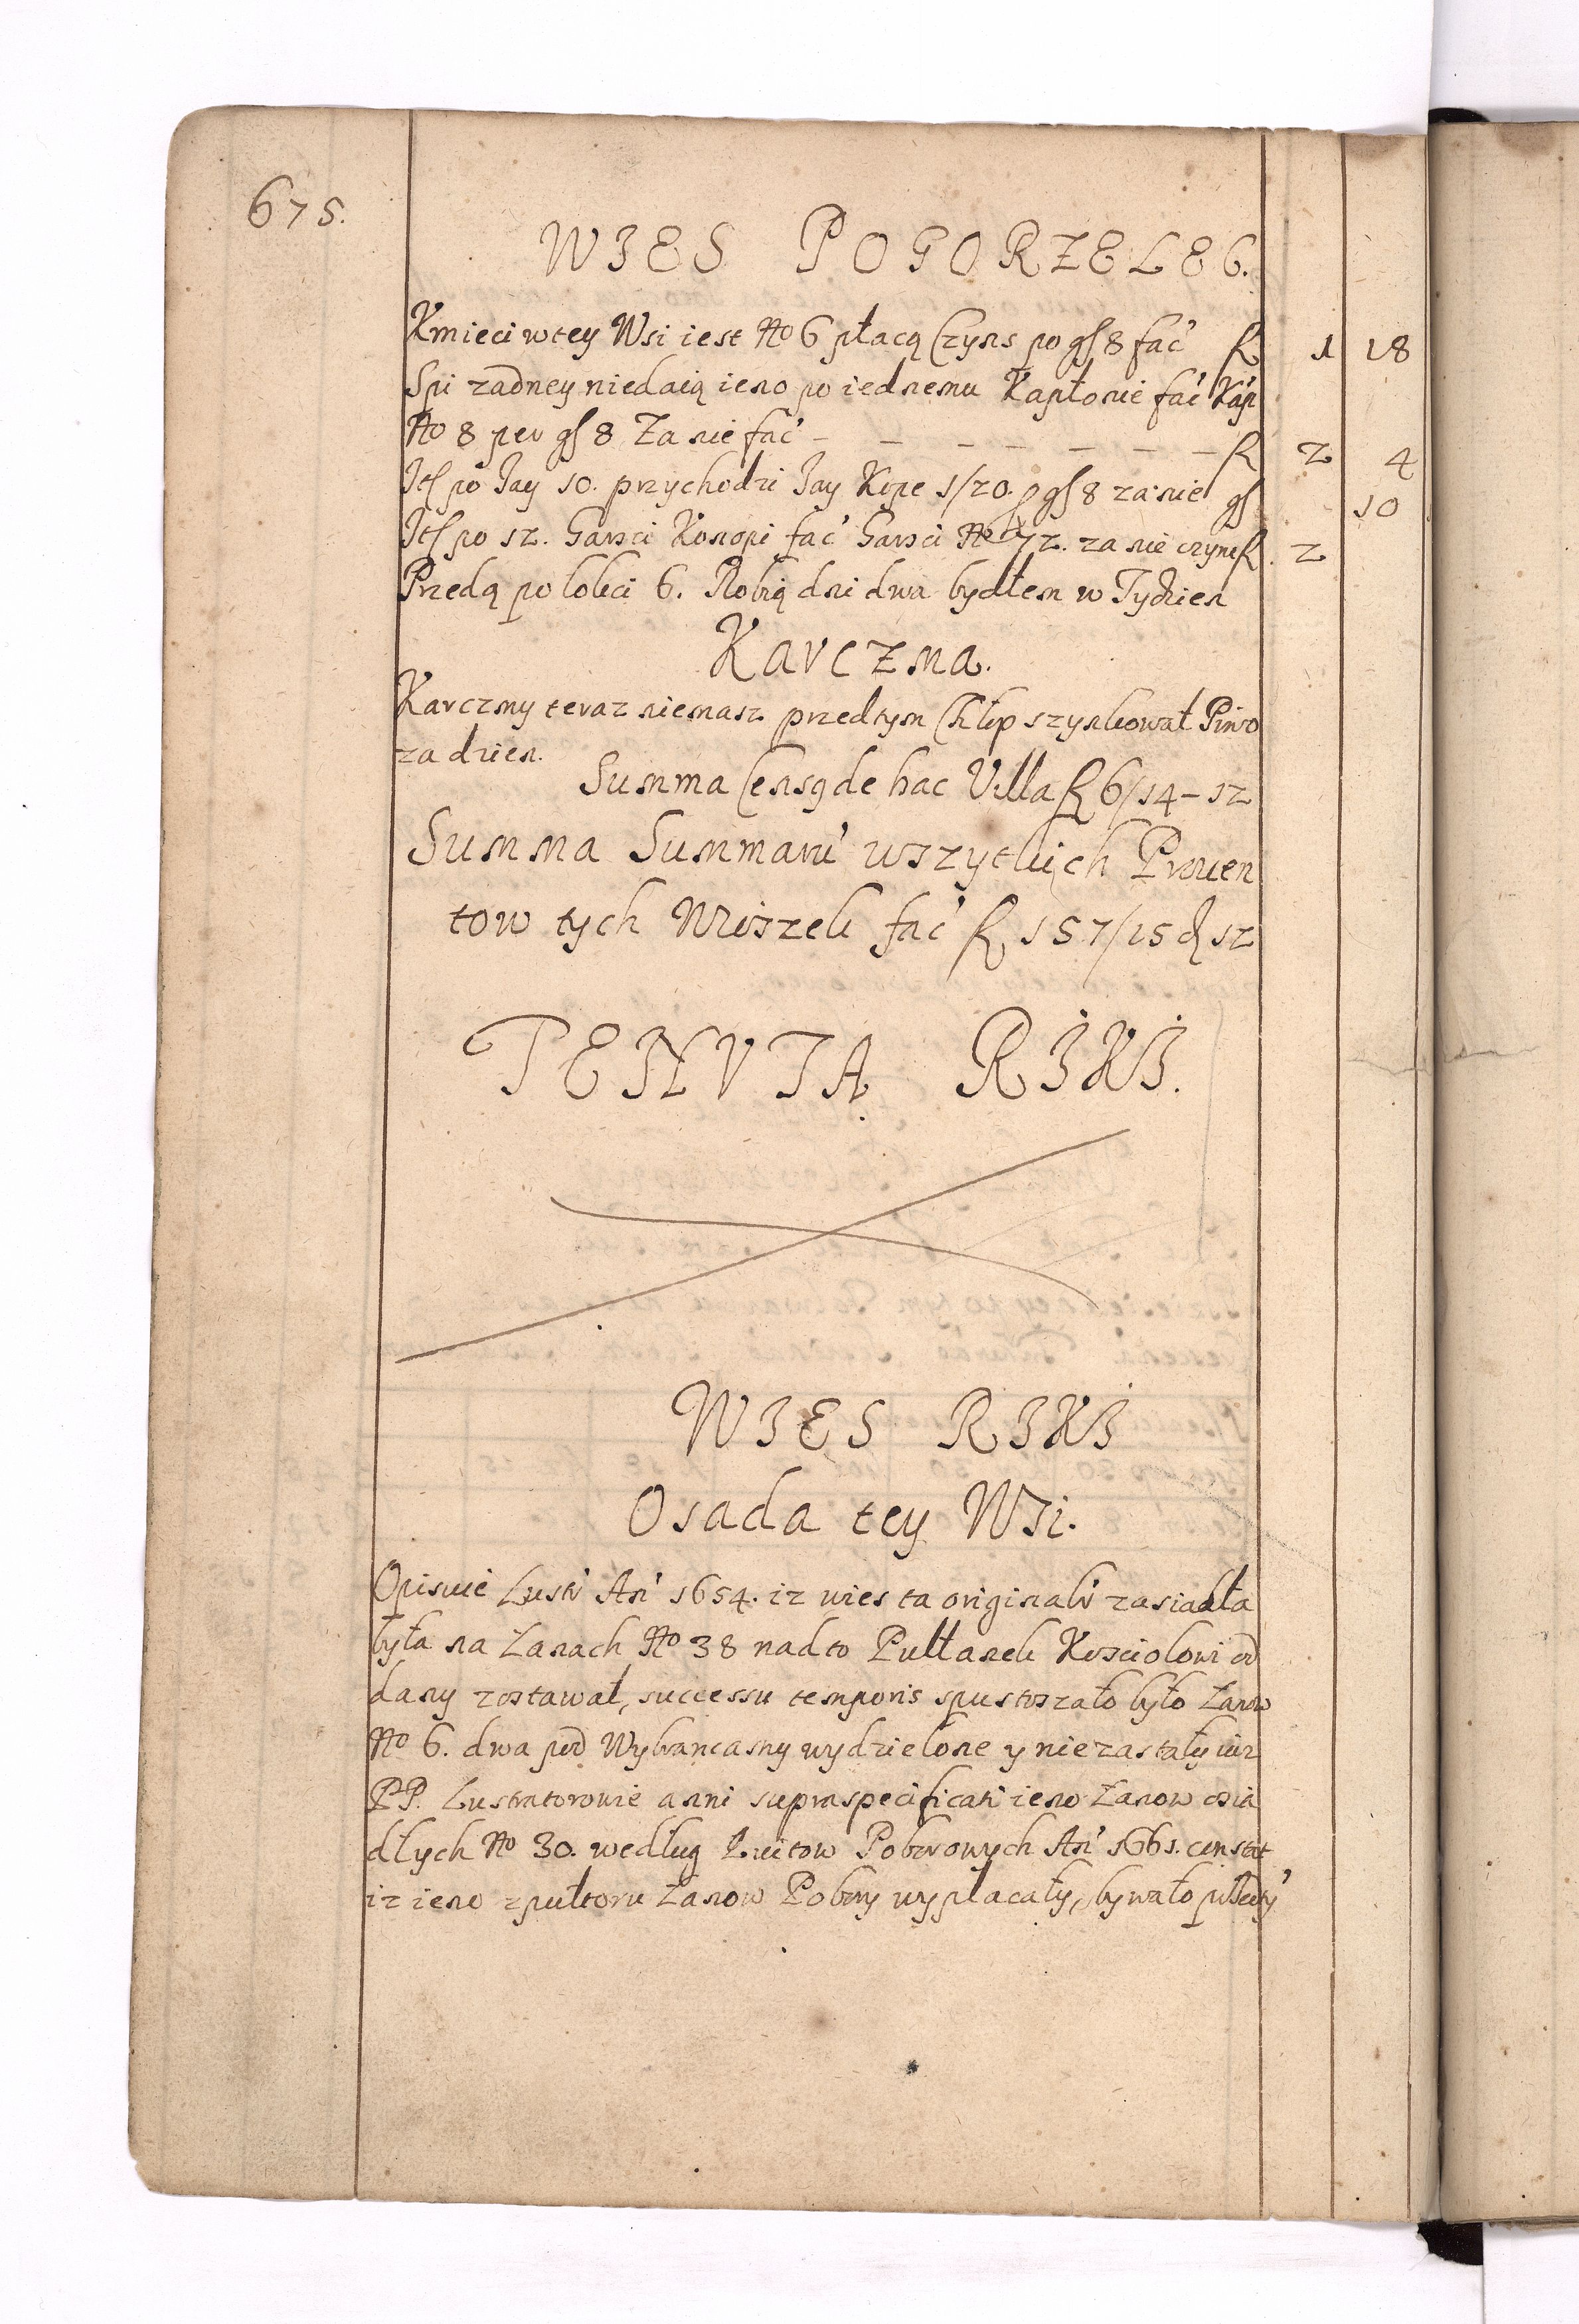 675.
WIES POGORZELEC.
Kmieci w tey Wsi iest No 6 płacą Czyns po gß 8 fac' fl 1 18
Spi zadney niedaią ieno po iednemu Kapłonie fac' Kap
No 8 per gß 8 Za nie fac' – – – – – – – fl 2 4
Itß po Jay 10. przychodzi Jay Kope 1/20. p gß 8 za nie gß 10
Itß po 12. Garsci Konopi fac' Garsci No 72. za nie czyni fl 2
Przedą po lokci 6. Robią dni dwa bydłem w Tydzien
Karczma.
Karczmy teraz niemasz przedtym Chłop szynkował Piwo
za dzien.
Summa Censq de hac Villa fl 6/14–12
Summa Summarū wszytkich Prouen
tow tych Wiosek fac' fl 157/15 ₰ 12
TENVTA RIKI.
WIES RIKI
Osada tey Wsi.
Opisuie Lustr' An' 1654. iz wies ta originalr' zasiadła
była na Łanach No 38 nadto Pułłanek Kosciolowi od
dany zostawał, successu temporis spustoszało było Łanow
No 6. dwa pod Wybrancasny wydzielone y nie zastały iuz
PP. Lustratorowie anni supraspecificati ieno Łanow osia
dłych No 30. według kwitow Poborowych An' 1661. constat
iz ieno z pułtoru Łanow Pobory wypłacały, bywało